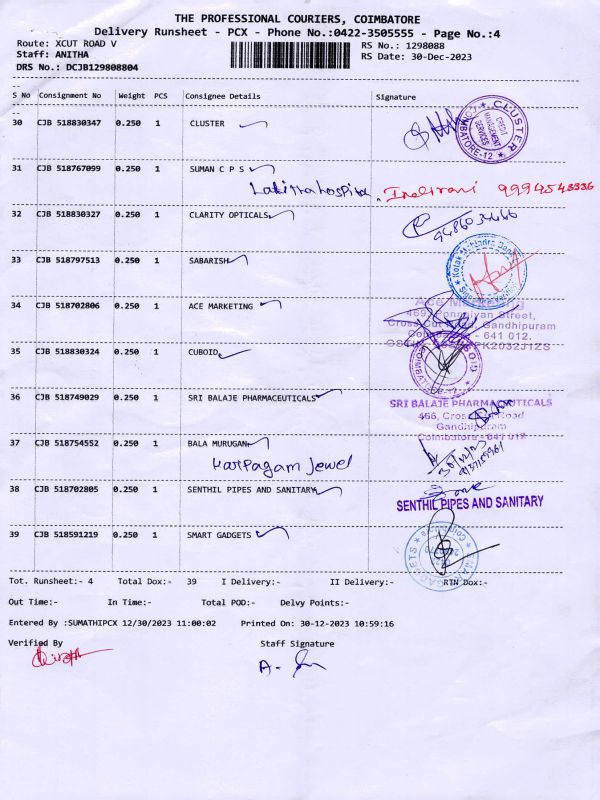 THE PROFESSIONAL COURIERS, COIMBATORE
Delivery Runsheet - PCX - Phone No.:0422-3505555 - Page No.:4
Route: XCUT ROAD V
RS No.: 1298088
Staff: ANITHA
RS Date: 30-Dec-2023
DRS No.: DCJB129808804
S No Consignment No Weight PCS Consignee Details Signature
30 CJB 518830347 0.250 1 CLUSTER
CLUSTER CREDIT MANAGEMENT SERVICES
31 CJB 518767099 0.250 1 SUMAN C P S
32 CJB 518830327 0.250 1 CLARITY OPTICALS
33 CJB 518797513 0.250 1 SABARISH
34 CJB 518702806 0.250 1 ACE MARKETING
Ace Marketing
Gandhipuram
641 012.
35 CJB 518830324 0.250 1 CUBOID
36 CJB 518749029 0.250 1 SRI BALAJE PHARMACEUTICALS
SRI BALAJE PHARMACEUTICALS
466, Cross Cut Road
Gandhipuram
Coimbatore - 641 012
37 CJB 518754552 0.250 1 BALA MURUGAN
Karpagam Jewel
38 CJB 518702805 0.250 1 SENTHIL PIPES AND SANITARY
SENTHIL PIPES AND SANITARY
39 CJB 518591219 0.250 1 SMART GADGETS
Tot. Runsheet:- 4 Total Dox:- 39 I Delivery:- II Delivery:- RTN Dox:-
Out Time:- In Time:- Total POD:- Delvy Points:-
Entered By :SUMATHIPCX 12/30/2023 11:00:02 Printed On: 30-12-2023 10:59:16
Verified By Staff Signature